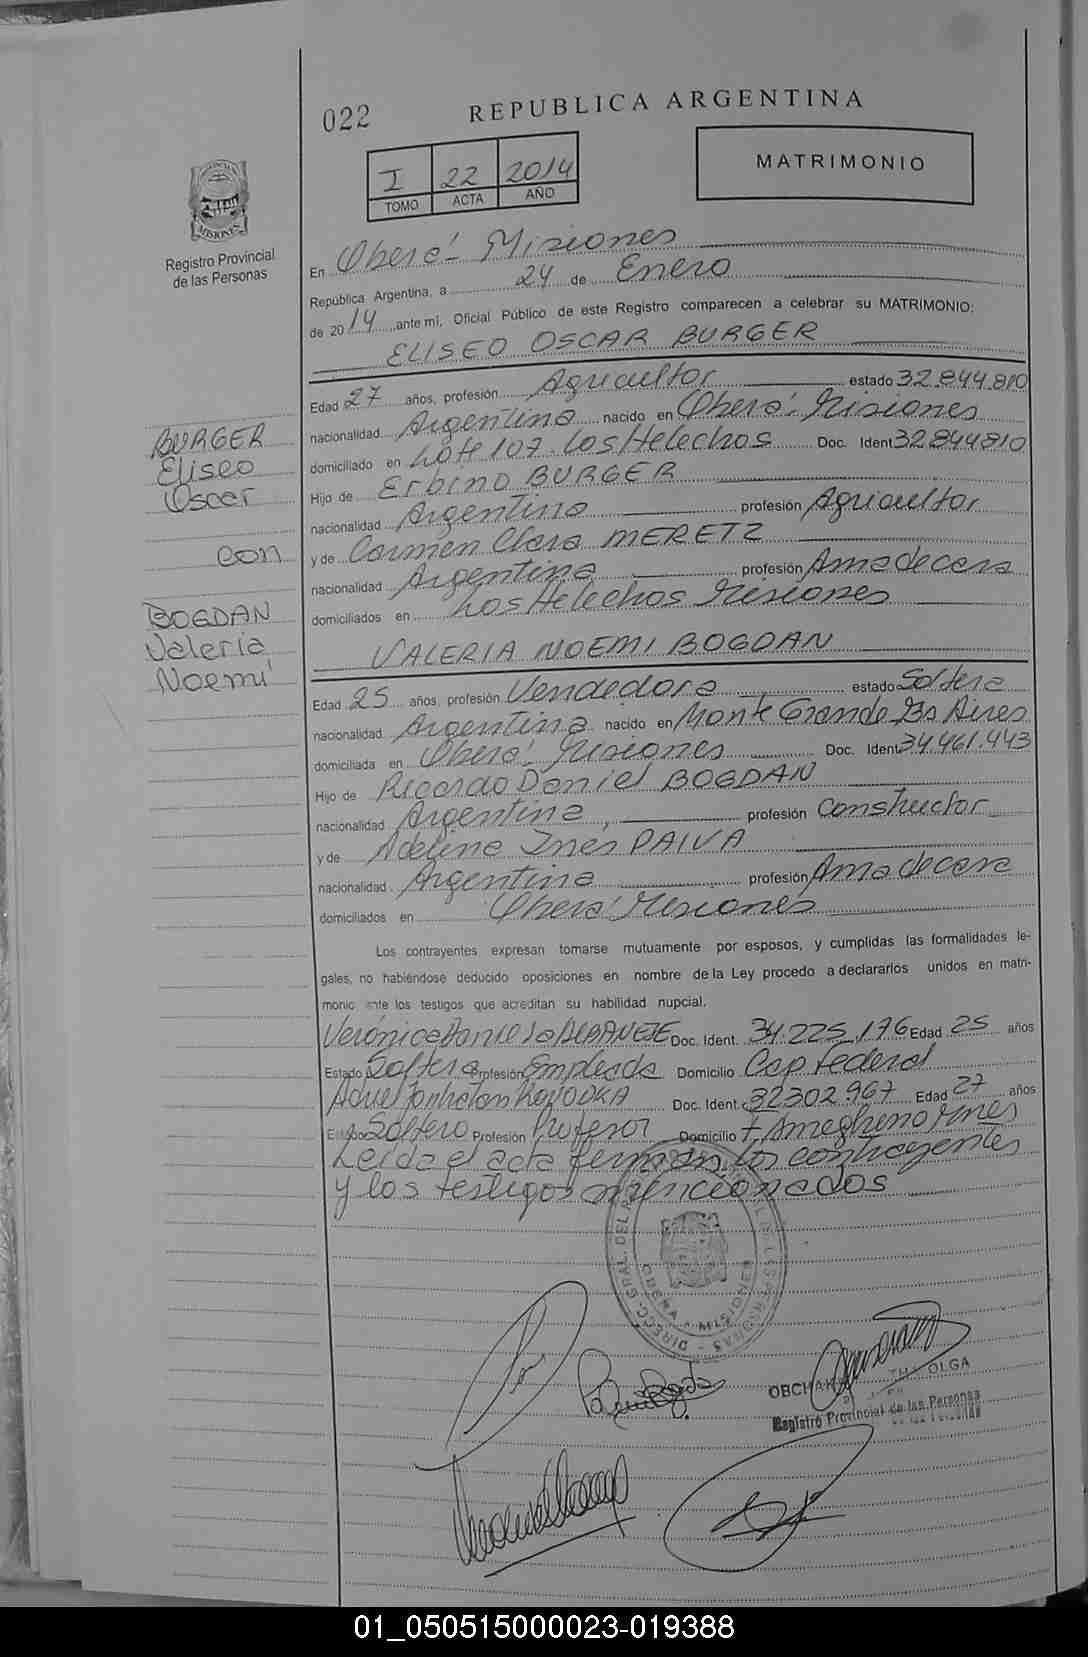 022 REPUBLICA ARGENTINA
I 22 2014
TOMO ACTA AÑO
MATRIMONIO
MISIONES
Registro Provincial
de las Personas
En Oberá - Misiones
República Argentina, a 24 de Enero
de 2014 ante mí, Oficial Público de este Registro comparecen a celebrar su MATRIMONIO:
ELISEO OSCAR BURGER
Edad 27 años, profesión Agricultor estado 32.844.810
nacionalidad Argentina nacido en Oberá - Misiones
domiciliado en Lote 107. Los Helechos Doc. Ident 32844810
Hijo de Erbino BURGER
nacionalidad Argentina profesión Agricultor
y de Carmen Clara MERETZ
nacionalidad Argentina profesión Ama de casa
domiciliados en Los Helechos Misiones
VALERIA NOEMI BOGDAN
Edad 25 años, profesión Vendedora estado Soltera
nacionalidad Argentina nacido en Monte Grande Bs Aires
domiciliada en Oberá - Misiones Doc. Ident 34.461.443
Hijo de Ricardo Daniel BOGDAN
nacionalidad Argentina, profesión Constructor
y de Adelina Ines PAIVA
nacionalidad Argentina profesión Ama de casa
domiciliados en Oberá Misiones
BURGER
Eliseo
Oscar
con
BOGDAN
Valeria
Noemí
Los contrayentes expresan tomarse mutuamente por esposos, y cumplidas las formalidades le-
gales, no habiéndose deducido oposiciones en nombre de la Ley procedo a declararlos unidos en matri-
monio ante los testigos que acreditan su habilidad nupcial.
Verónica Doc. Ident. 34.225.176 Edad 25 años
Estado Soltera Profesión Empleada Domicilio Cap Federal
Doc. Ident. 32302.967 Edad 27 años
Estado Soltero Profesión Profesor Domicilio F. Ameghino Mnes
Leída el acta firman los contrayentes
y los testigos mencionados
DIRECC. GRAL. DEL R DE LAS PERSONAS
OBERA - MISIONES
OLGA
Registro Provincial de las Personas
01_050515000023-019388